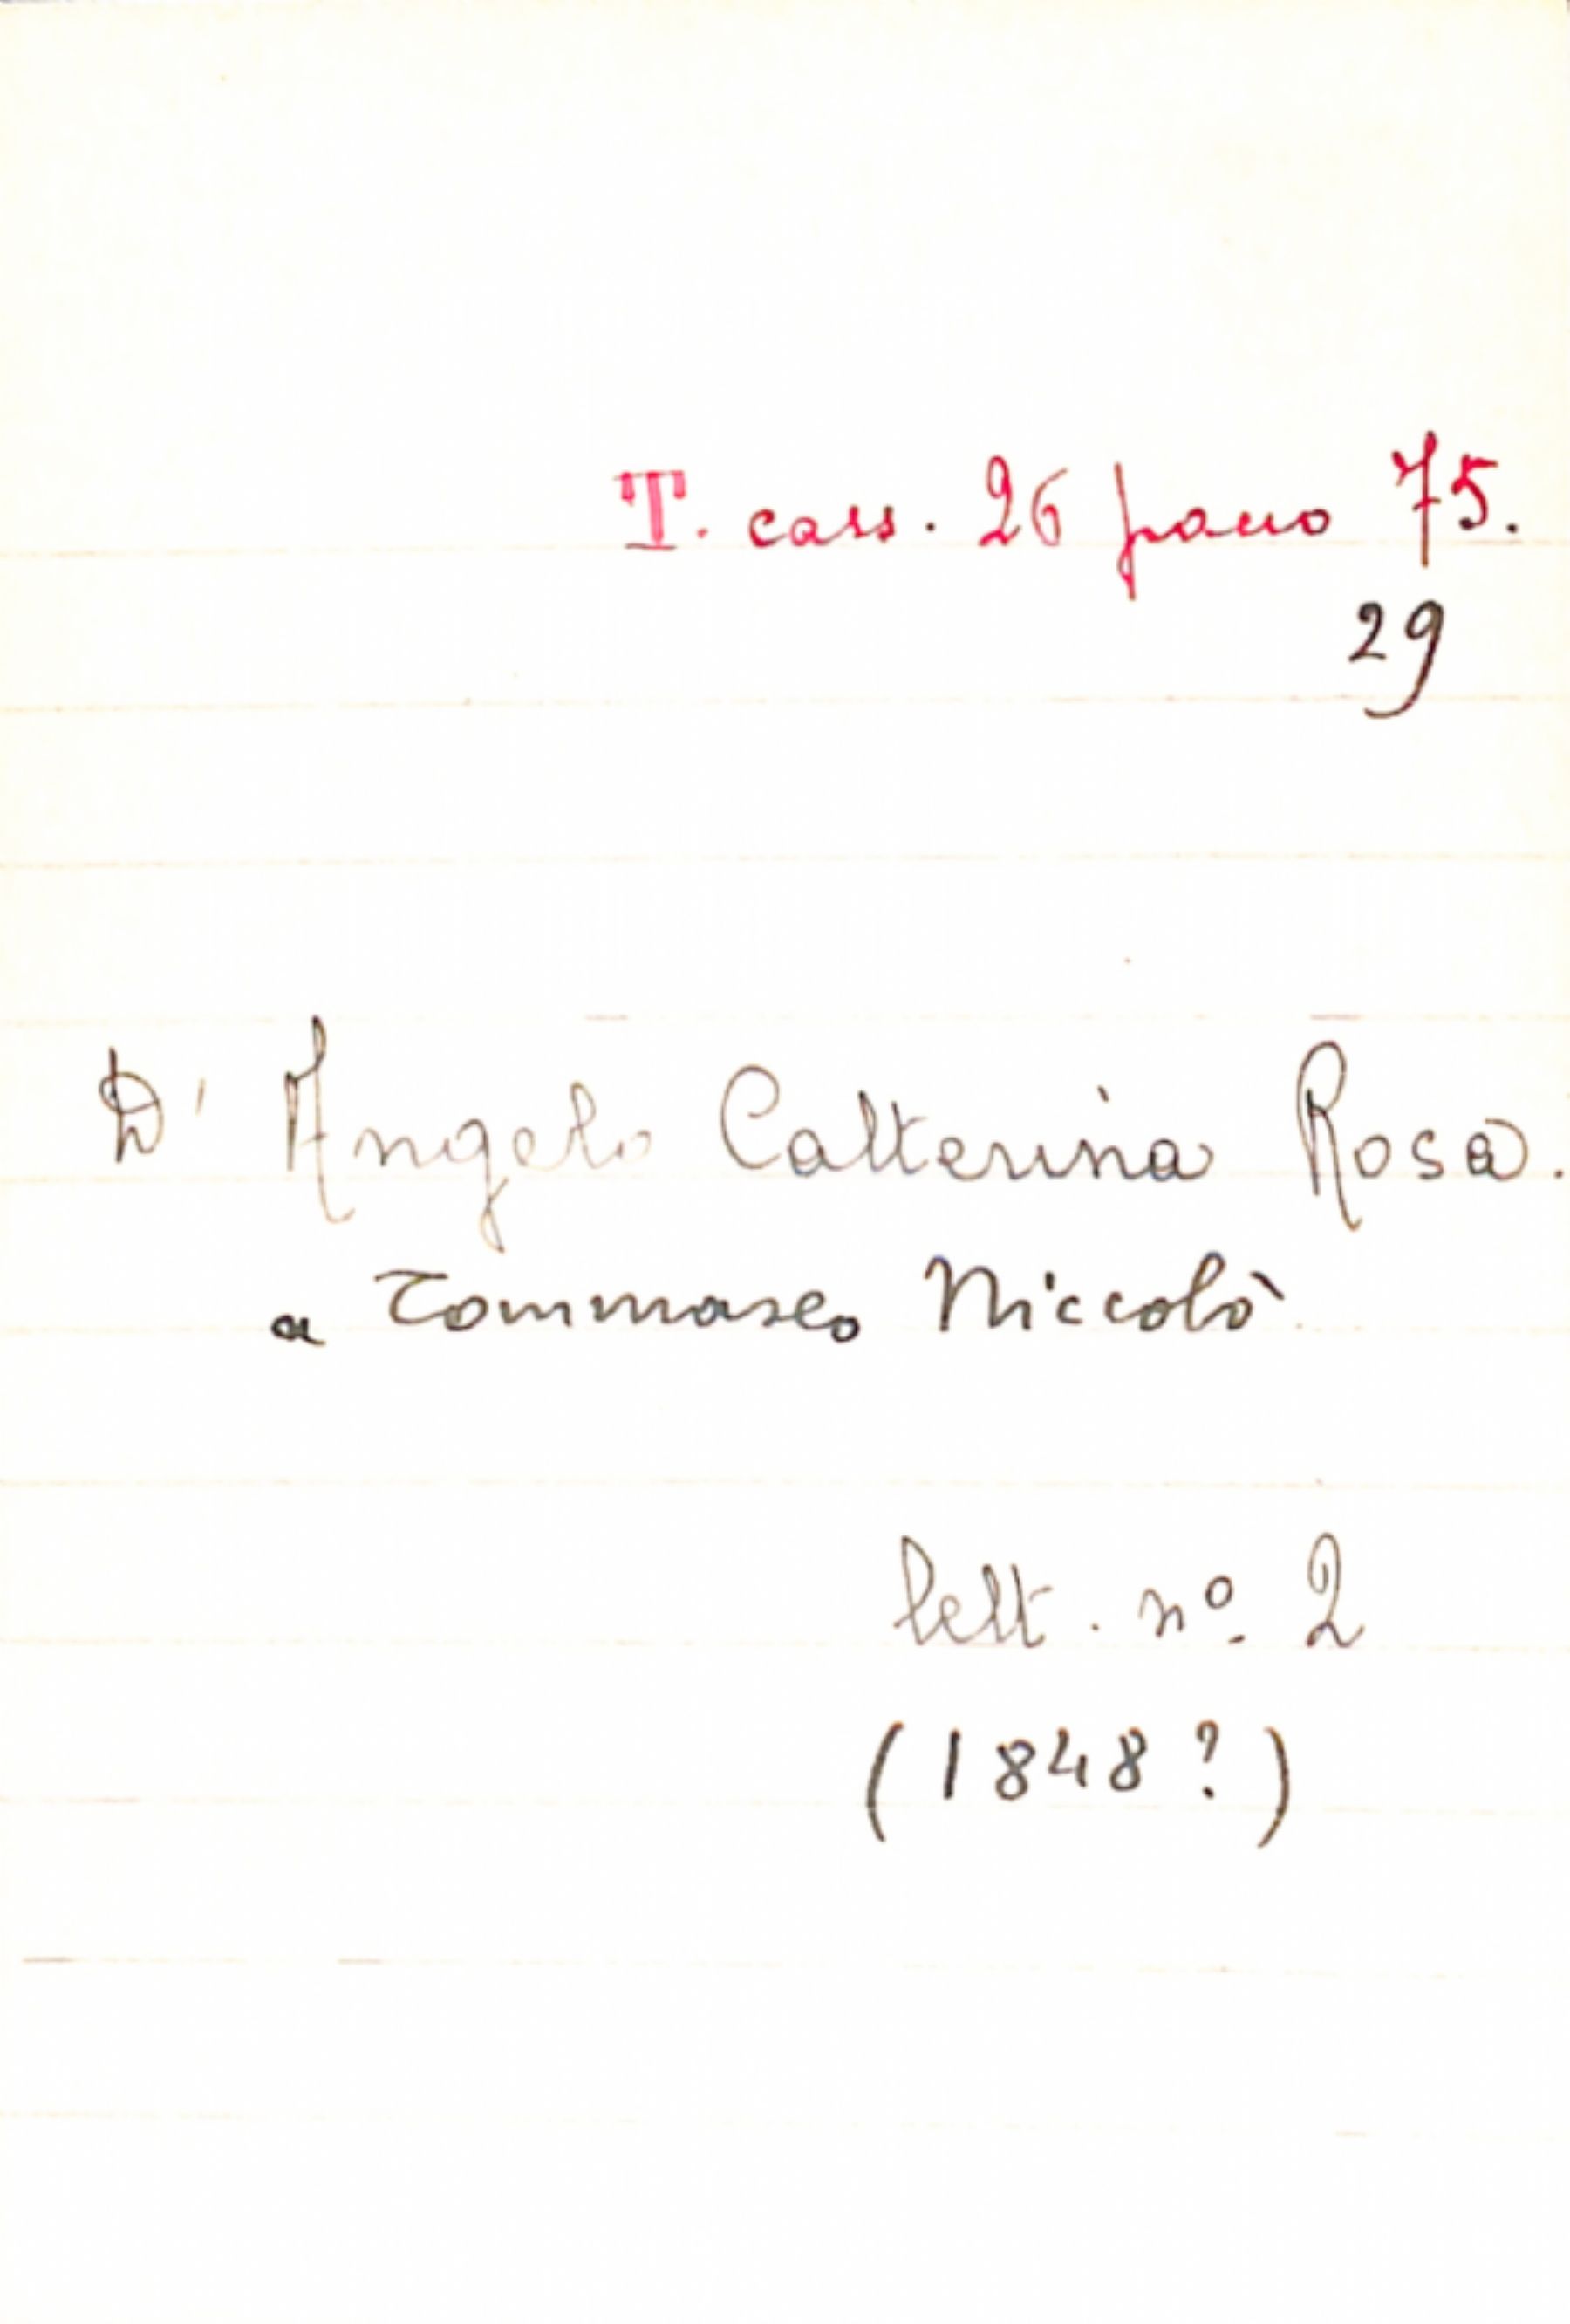 T. cass. 26 pacco 75.
29
D' Angelo Catterina Rosa.
a Tommaseo Niccolò
lett. nº 2
(1848?)